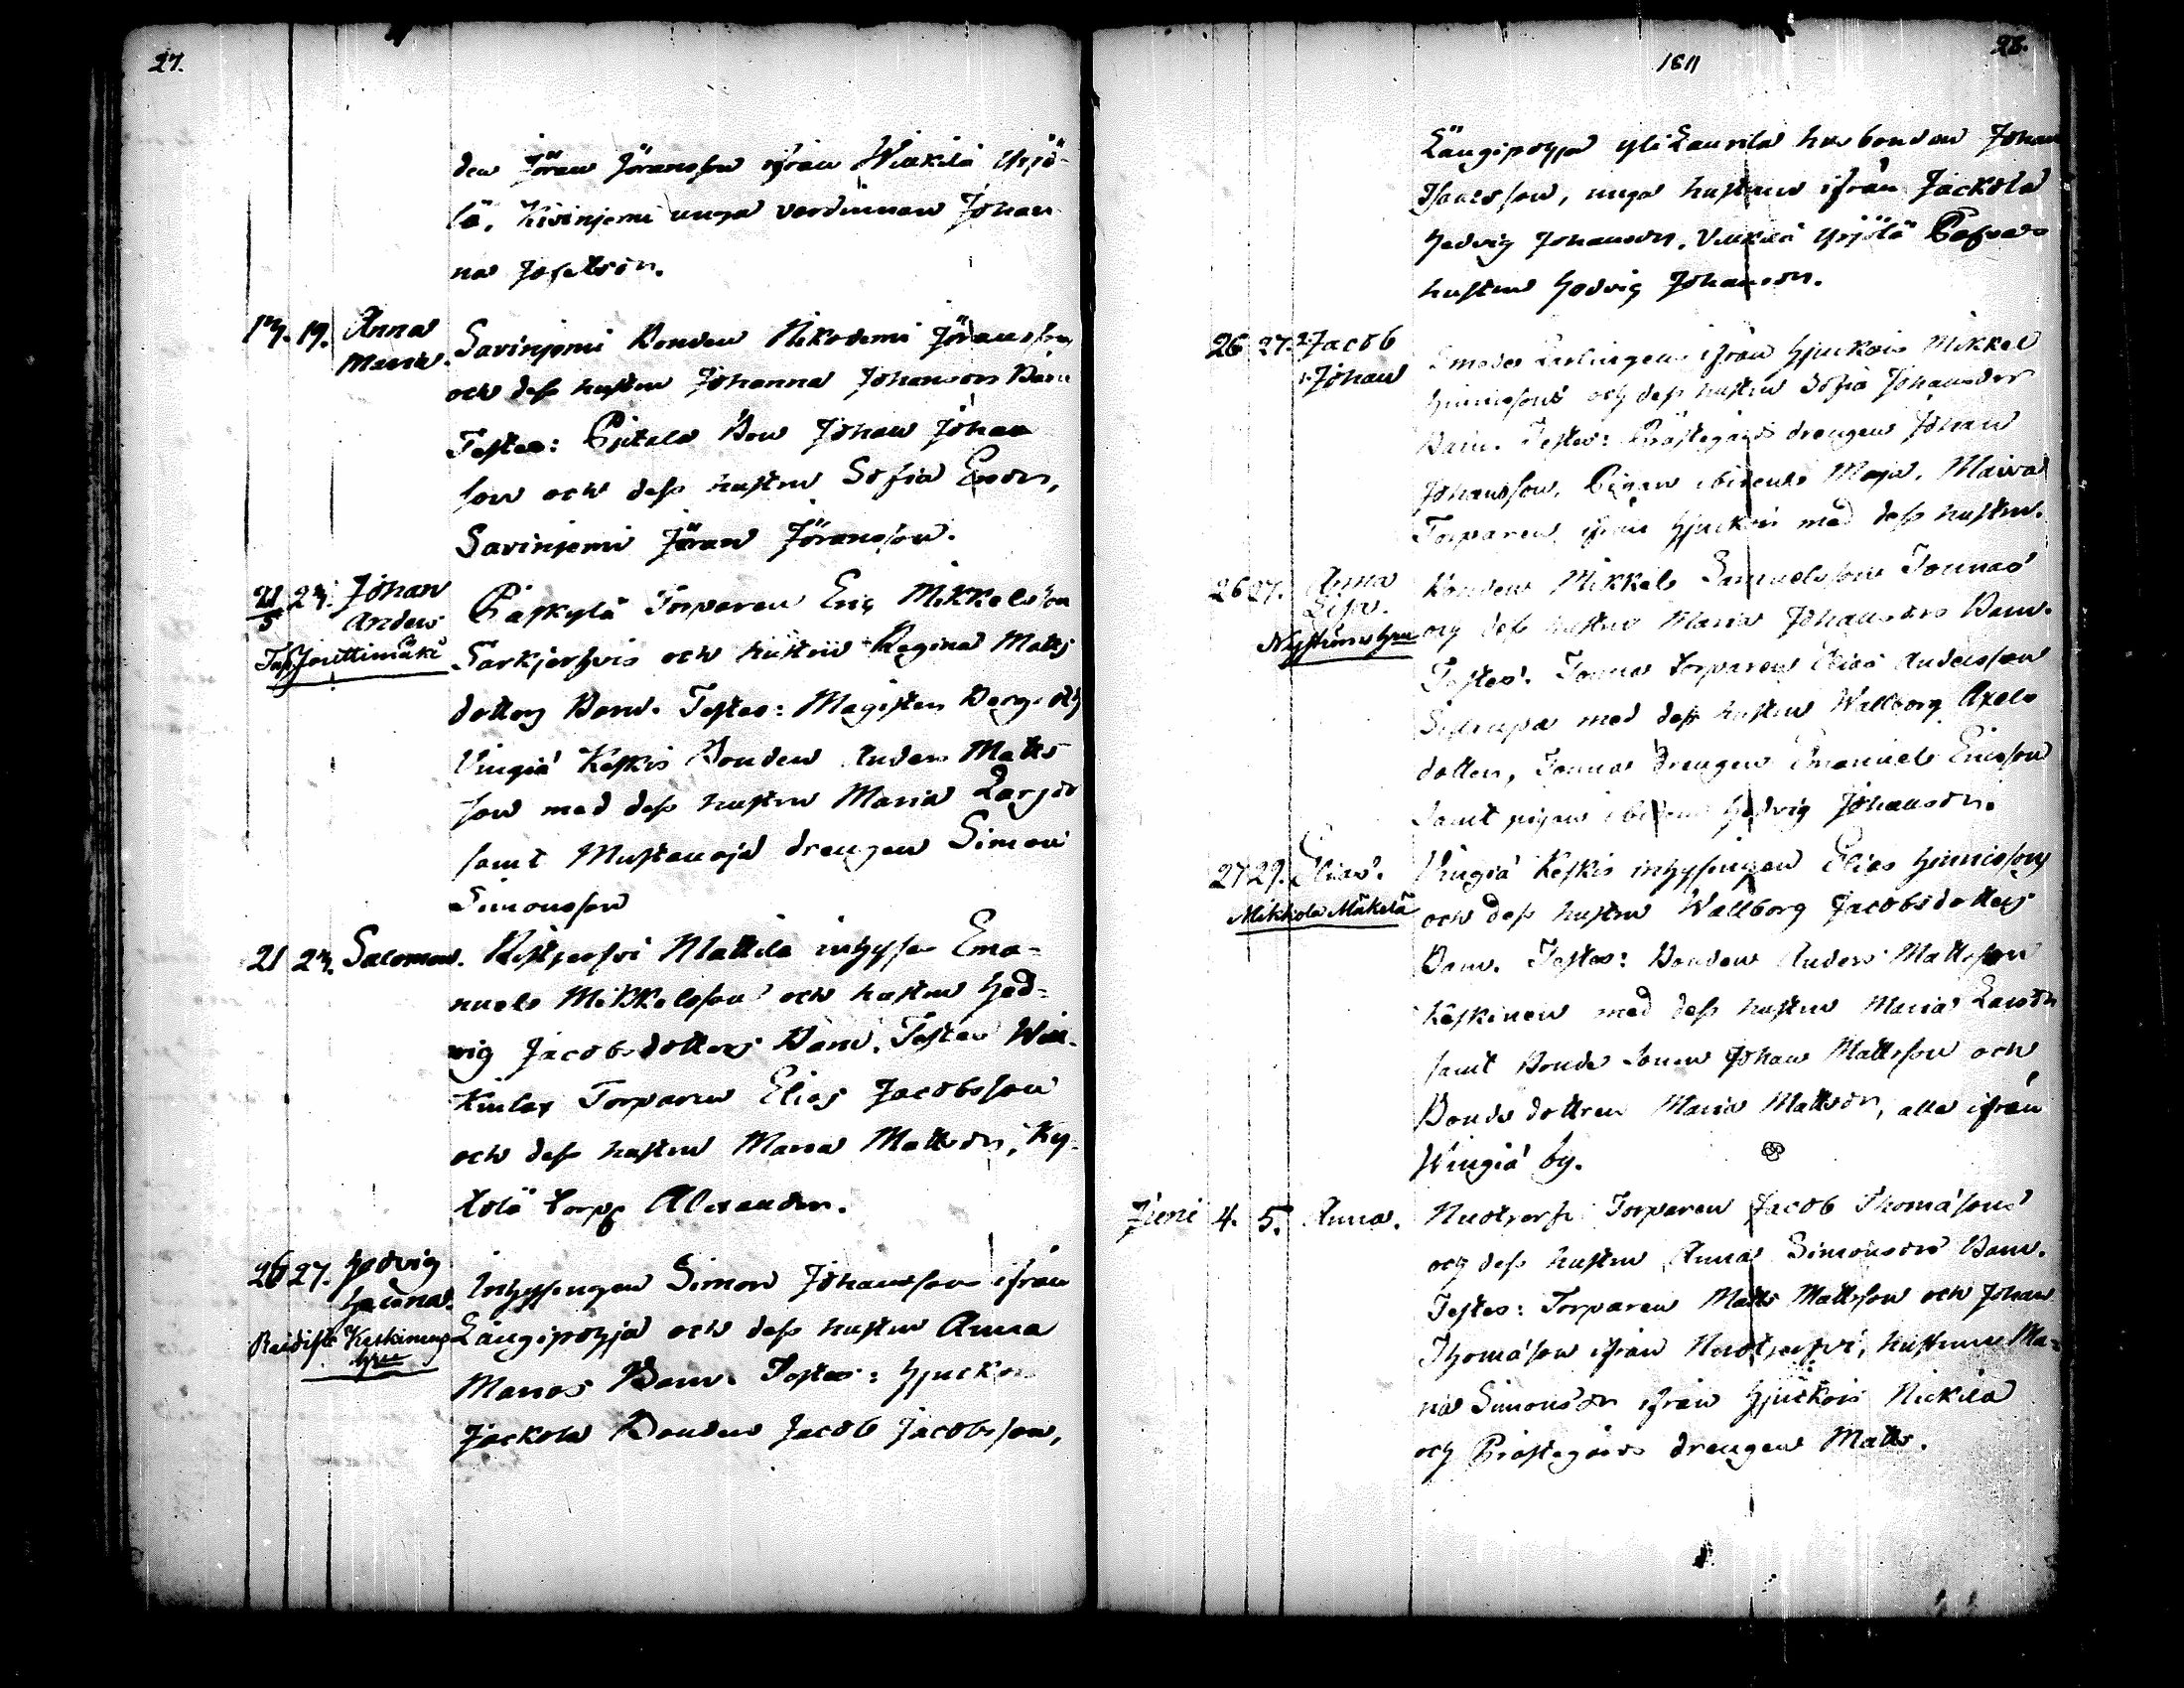 27.
den Jöran Jöransson ifrån Winkilä Yrjö-
lä, Kivinjemi unga värdinnan Johan
na Josefsdr.
17. 19. Anna
Maria.
Savinjemi Bonden Nikodemi Jöransson
och dess hustru Johanna Johansdrs Barn
Testes: Bon Johan Johan
son och dess hustru Sofia Ersdr,
Savinjemi Jöran Jöransson.
21/5 23. Johan
Anders
Jouttimäki
Torparen Eric Mikkelsson
Sarkjerfvis och hustrus Regina Matts
dotters Barn. Testes: Magister Berg och
Vingiä Keskis Bonden Anders Matts
son med dess hustru Maria Larsdr
samt Mustanoja drengen Simon
Simonsson
21 23. Salomon. Ristjerfvi Mattila inhyses Ema-
nuels Mikkelsson och hustru Hed-
vig Jacobsdotters Barn. Testes
Torparen Elias Jacobsson
och dess hustru Maria Mattsdr, Ky-
torp Alexander.
26 27. Hedvig
Helena.
Keskinens
Inhysingen Simon Johansson ifrån
Längipohja och dess hustru Anna
Marias Barn. Testes: Hjuckois
Jäckölä Bonden Jacob Jacobsson,
1811
28.
Längipohja Yli Laurila husbonden Johan
Isacsson, unga hustrun ifrån Jäckölä
Hedvig Johansdr, Yrjölä
hustru Hedvig Johansdr.
26 27. 2. Jacob
1. Johan
ifrån Hjuckois Mikkel
Hinricsons och dess hustru Sofia Johansdrs
Barn. Testes: Prästegårds drengen Johan
Johansson, Pigan ibidem Maja Maria
Torparen ifrån Hjuckois med dess hustru.
26 27. Anna
Lisa.
Bonden Mikkels Samuelsson Tounas
och dess hustrus Maria Johansdrs Barn.
Testes: Touna torparen Elias Andersson
med dess hustru Wallborg Axels
dotter, Touna drengen Emanuels Ericsson
samt pigan ibidem Hedvig Johansdr.
27 29. Elias.
Mikkola Mäkelä
Vingiä Keskis inhysingen Elias Hinricssons
och dess hustru Wallborg Jacobsdotters
Barn. Testes: Bonden Anders Mattsson
Keskinen med dess hustru Maria Larsdr
samt Bonde sonen Johan Mattsson och
Bonde dottren Maria Mattsdr, alla ifrån
Wingiä by.
Juni 4. 5. Anna. Torparen Jacob Thomassons
och dess hustru Anna Simonsdrs Barn.
Testes: Torparen Matts Mattsson och Johan
Thomasson ifrån hustrun Ma-
ria Simonsdr ifrån Hjuckois Nickilä
och Prästegårds drengen Matts.